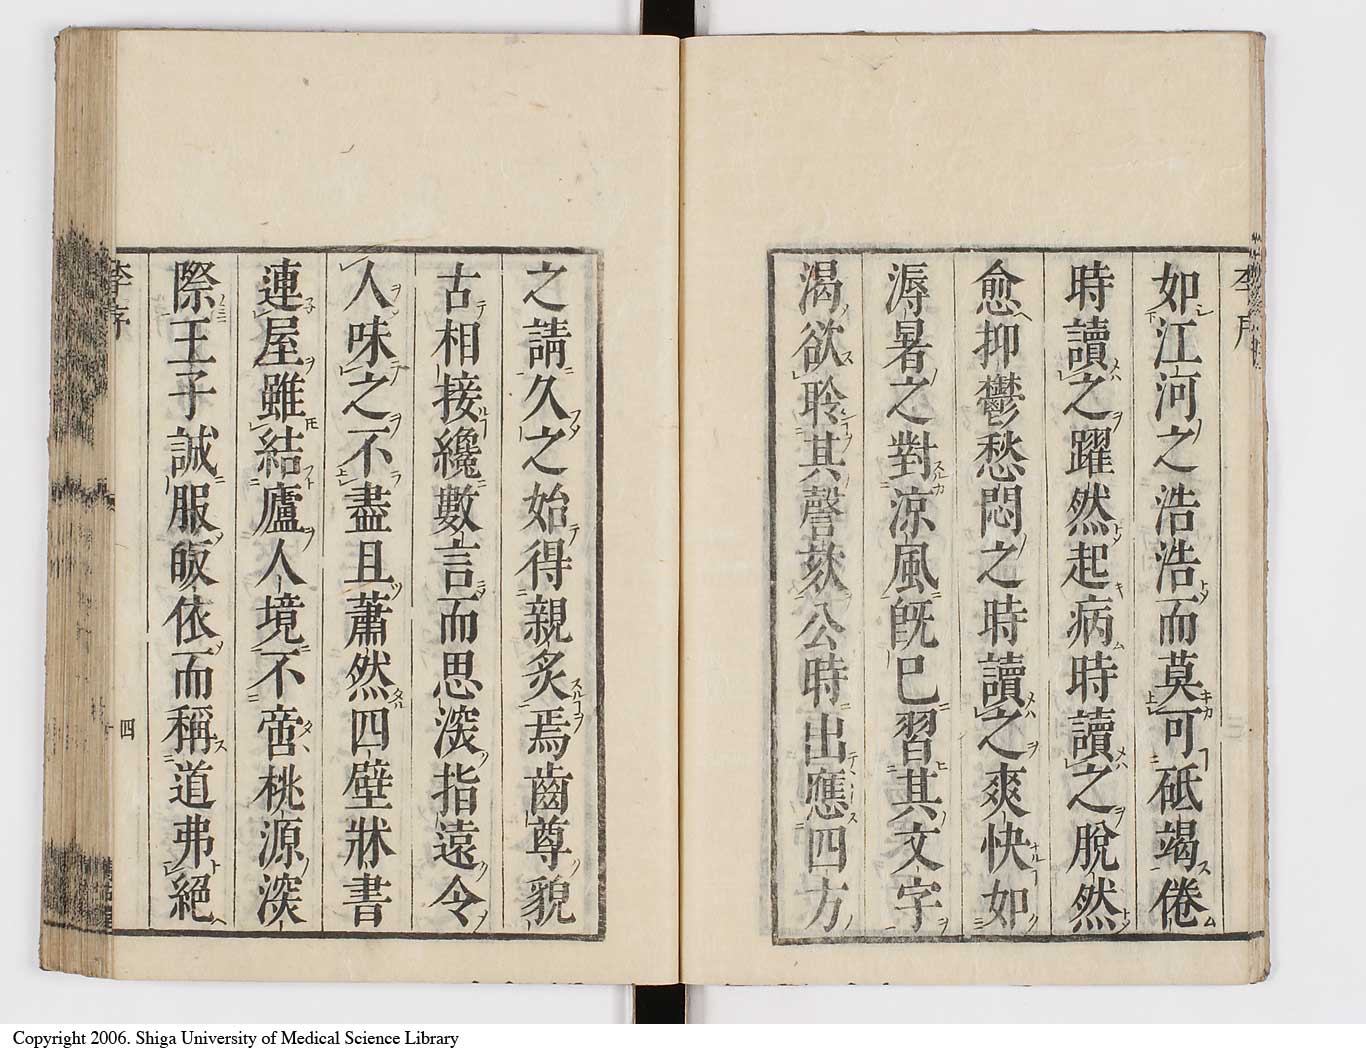 如江河之浩浩而莫可砥竭倦
時讀之躍然起病時讀之脫然
愈抑鬱愁悶之時讀之爽快如
溽暑之對凉風旣已習其文字
渴欲聆其謦欬公時出應四方
之請久之始得親炙焉齒尊貌
古相接纔數言而思深指遠令
人味之不盡且蕭然四壁牀書
連屋雖結廬人境不啻桃源深
際王子誠服皈依而稱道弗絕
李序
四
Copyright 2006. Shiga University of Medical Science Library